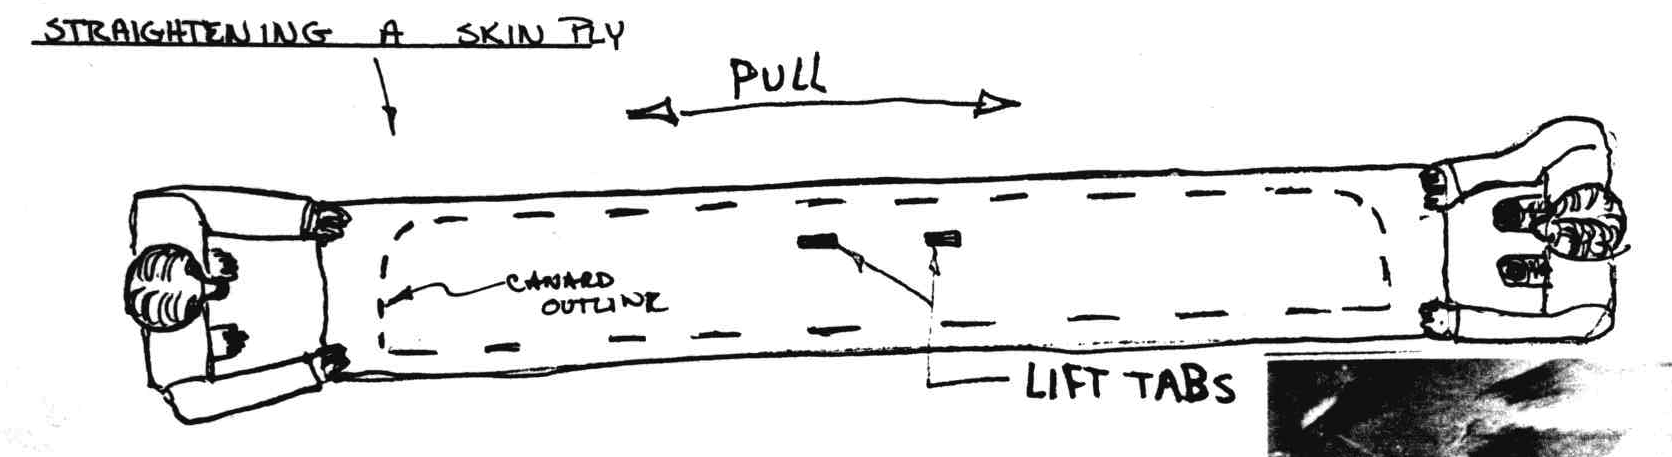 STRAIGHTENING A SKIN PLY
PULL
CANARD
OUTLINE
LIFT TABS